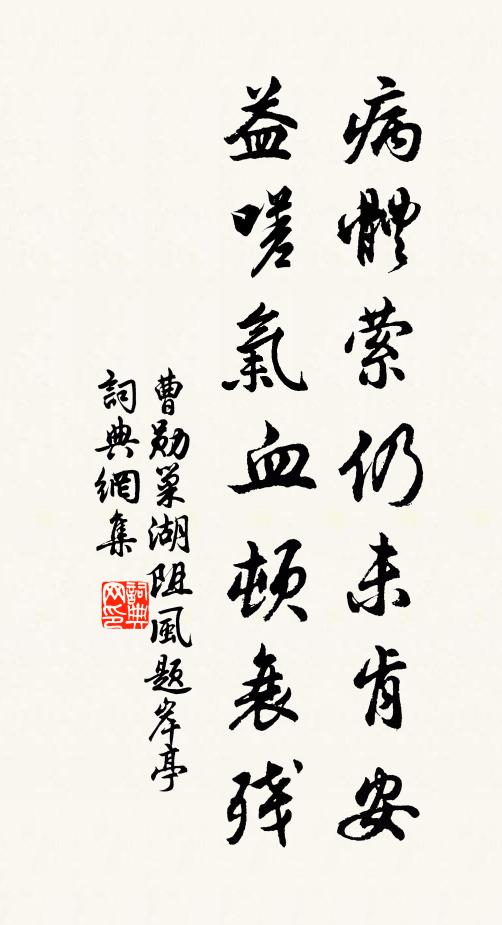 病體縈仍未肯安
益嗟氣血頓衰殘
曹勛巢湖阻風題岸亭
詞典網集
詞典网印